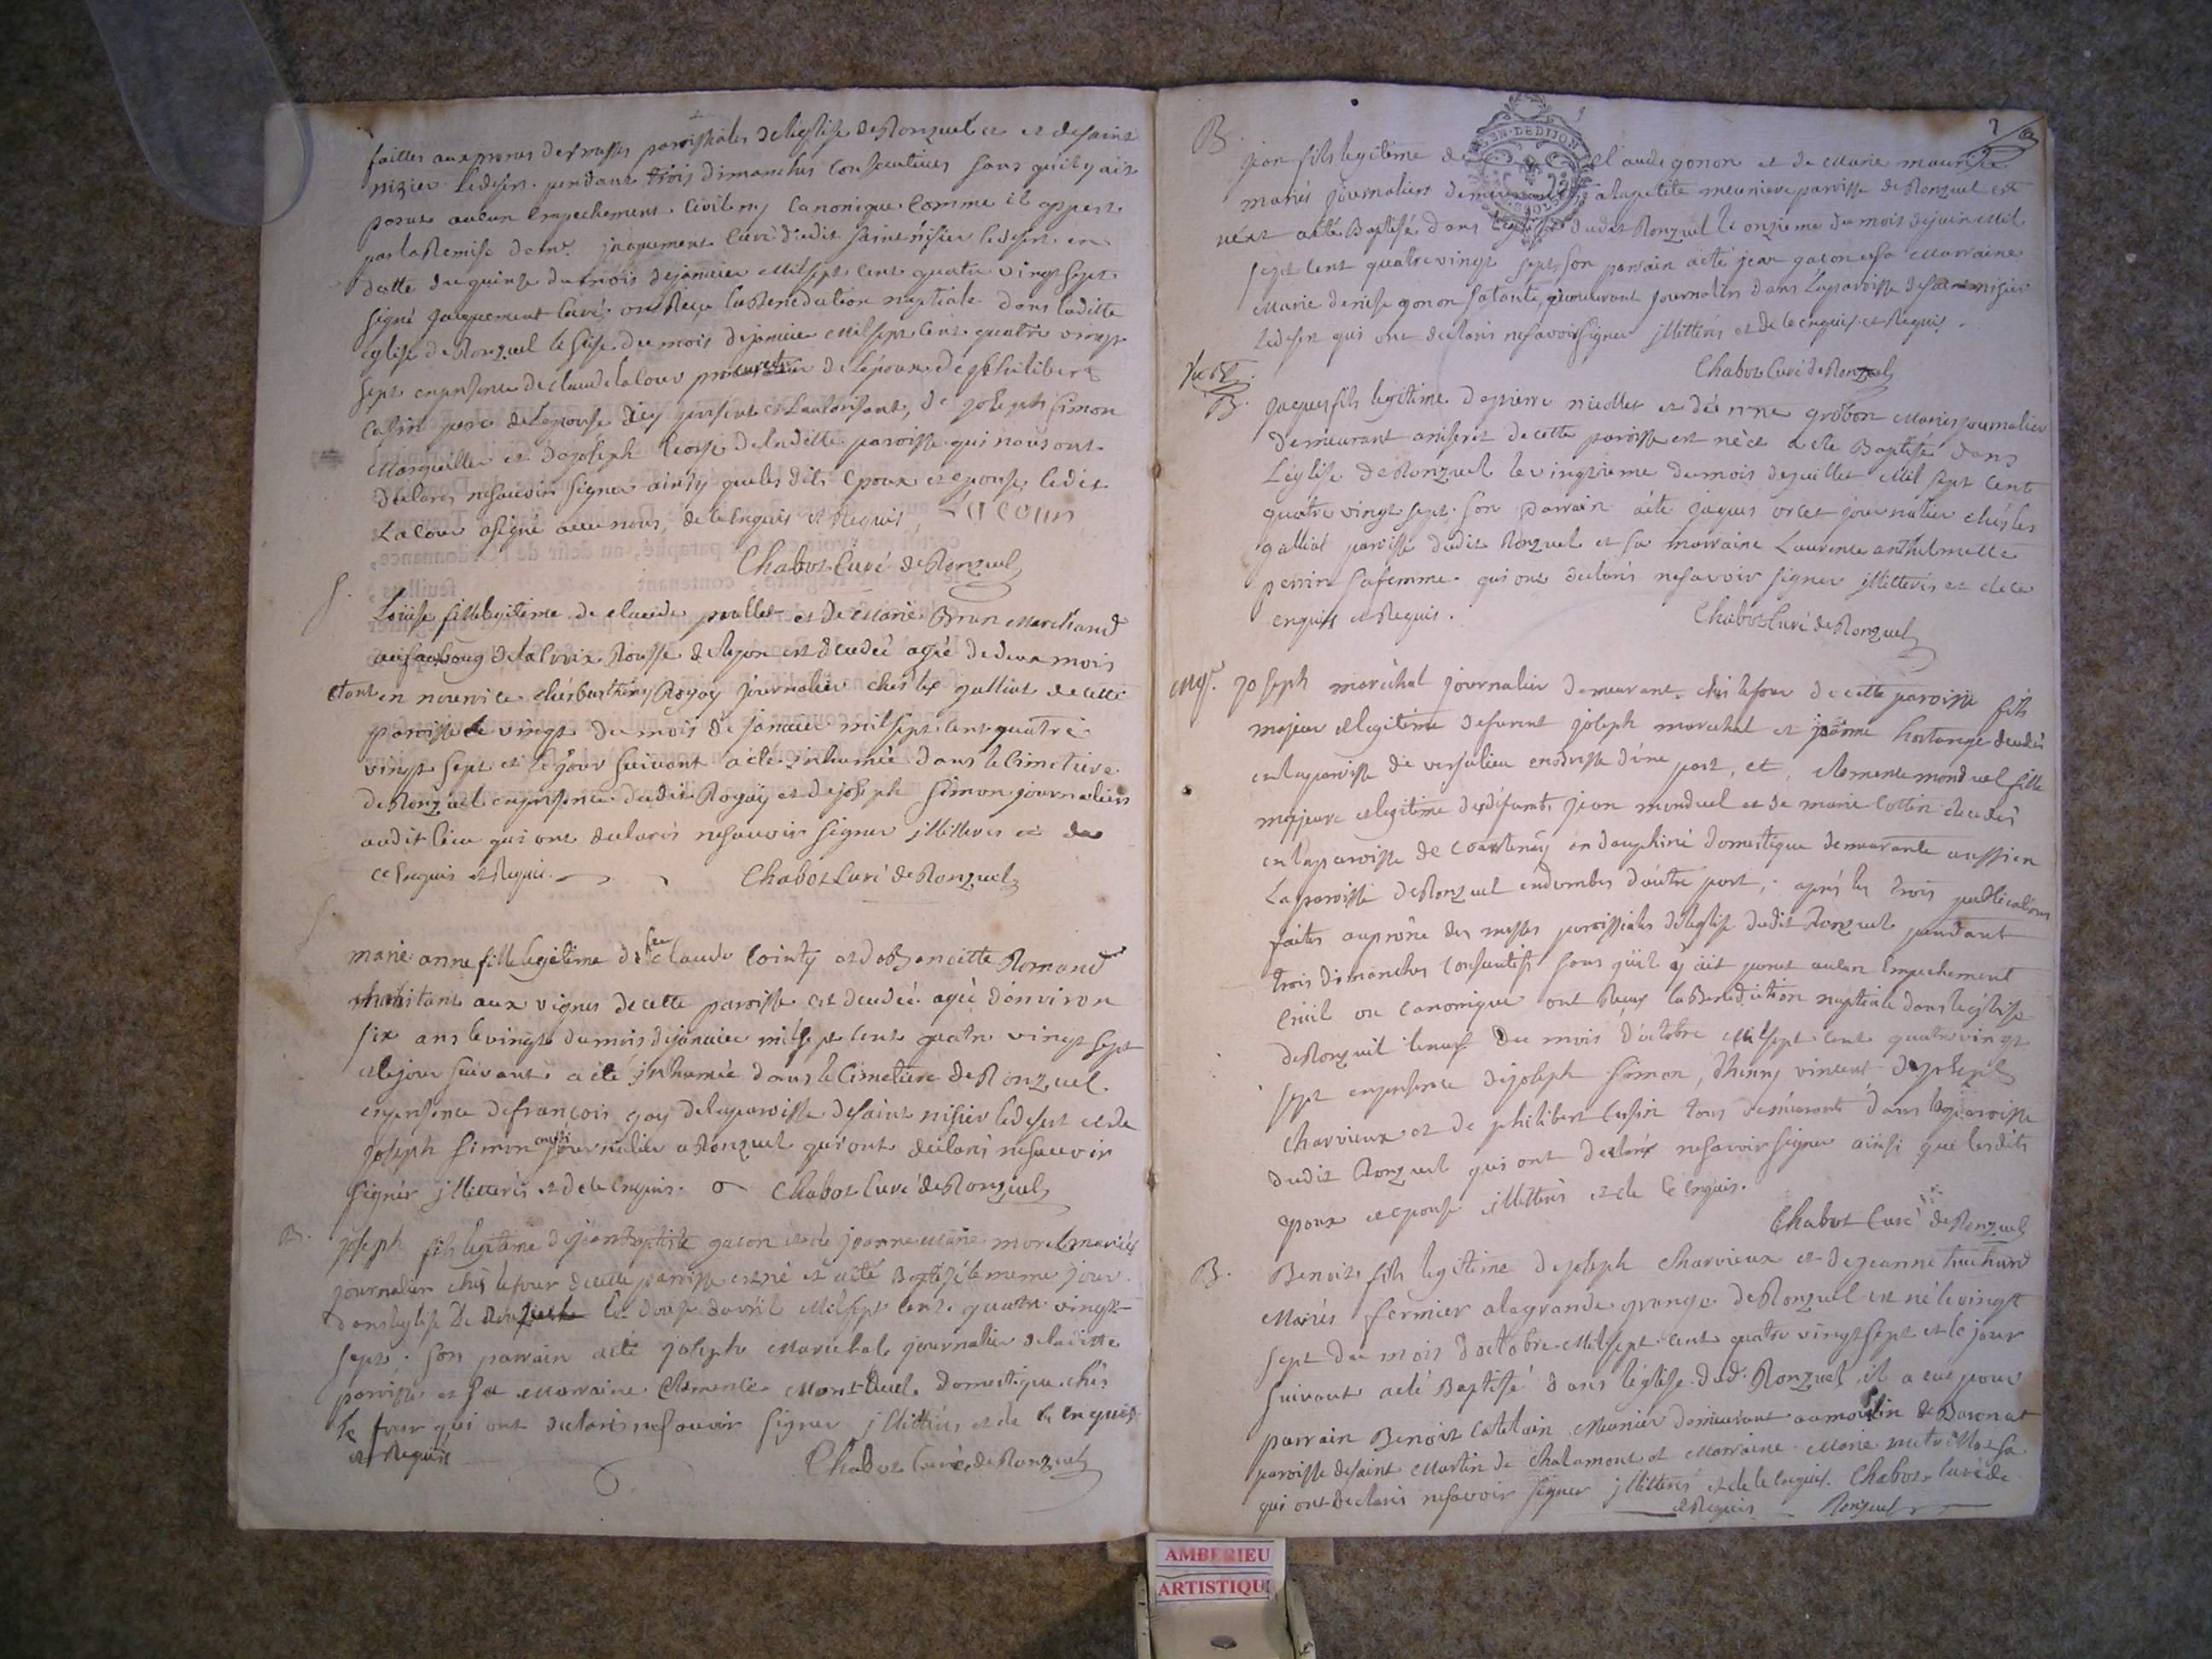 failles aux prones des messes paroissiales de leglise de Ronzuel et et desaint
nizier ledesert pendant trois dimanches consecutives sans quil y ait
parut aucun empechement civil ny canonique comme il appert
par la Remise de mr. jaquement curé dudit saint nisier ledesert en
datte du quinze du mois dejanvier mil sept cent quatre vingt sept
signé jaquement curé ont Reçu la Benediction nuptiale dans laditte
eglise de Ronzuel le seise du mois dejanvier mil sept cent quatre vingt
sept en presence de claude lacour de lepoux de philibert
père de lepouse icy present et l'autorisant, de joseph simon
Marguiller et de joseph de laditte paroisse qui nous ont
declarés ne savoir signer ainsy que les dits epoux et epouse, ledit
Lacour a signé avec nous, de ce enquis et Requis, Lacour
Chabot Curé de Ronzuel
S. Loüise fille legitime de claude prallet et de Marie Brun Marchand
au faubourg de la croix Rousse de lyon est decedée agée de deux mois
etant en nourrice chés Rogay journalier chés les galliat de cette
paroisse le vingt du mois de janvier mil sept cent quatre
vingt sept et le jour suivant a eté inhumée dans le Cimetiere
de Ronzuel en presence dudit Rogay et de joseph simon journaliers
audit lieu qui ont declarés ne savoir signer illitterés et de
ce Enquis et Requis. Chabot Curé de Ronzuel
S.
marie anne fille legitime de feu claude Cointy et de Benoitte Romand
habitant aux vignes de cette paroisse est decedée agée d'environ
six ans le vingt du mois de janvier mil sept cent quatre vingt sept
et le jour suivant a eté inhumée dans le Cimetiere de Ronzuel.
en presence de françois gay de la paroisse de saint nisier le desert et de
joseph simon aussi journalier a Ronzuel qui ont declarés ne savoir
signer illitterés et de ce enquis. Chabot Curé de Ronzuel
B. joseph fils legitime de jean Baptiste gacon et de jeanne marie morel mariés
journalier chés le four de cette paroisse est né et a eté Baptisé le meme jour
dans leglise de Ronzuel le douze davril mil sept cent quatre vingt
sept, son parrain a eté joseph Maréchal journalier de laditte
paroisse et sa Marraine Clemence Montduel domestique chés
le four qui ont declarés ne savoir signer illitterés et de ce enquis
et Requis Chabot Curé de Ronzuel
2
B. jean fils legitime de Claude gonon et de Marie
mariés journaliers demeurant a la petite meuniere paroisse de Ronzuel est
né et a été Baptisé dans leglise dudit Ronzuel le onzieme du mois de juin mil
sept cent quatre vingt sept, son parrain a eté jean gacon et sa Marraine
Marie denise gonon sa tante, demeurant journaliers dans la paroisse de saint nisier
le desert qui ont declarés ne savoir signer illitterés et de ce enquis et Requis.
Chabot Curé de Ronzuel
B. Jaques fils legitime de pierre niollet et de grobon Mariés journalier
demeurant de cette paroisse est né et a eté Baptisé dans
L'église de Ronzuel le vingtieme du mois de juillet mil sept cent
quatre vingt sept, son parrain a eté jaques orcet journalier chés les
galliat paroisse dudit Ronzuel et sa marraine Laurence anthelmette
perrin sa femme qui ont declarés ne savoir signer illitterés et de ce
enquis et Requis. Chabot Curé de Ronzuel
joseph maréchal journalier demeurant chés le four de cette paroisse fils
majeur et legitime de furent joseph marechal et jeanne decedés
en la paroisse de versalieu d'une part, et, clemence monduel fille
majeure et legitime des défunts jean monduel et de marie Cottin decedés
en la paroisse de Courtenay en dauphiné domestique demeurante aussi en
La paroisse de Ronzuel en dombes d'autre part, après les trois publications
faites au prône des messes paroissiales de leglise dudit Ronzuel pendant
trois dimanches consecutifs sans qu'il y ait parut aucun empechement
Civil ou Canonique ont Reçus la Benediction nuptiale dans leglise
de Ronzuel le neuf du mois d'octobre mil sept cent quatre vingt
sept en presence de joseph simon, vincent de joseph
charvieux et de philibert tous demeurants dans la paroisse
dudit Ronzuel qui ont declarés ne savoir signer ainsi que lesdits
epoux et epouse illitterés et de ce enquis.
Chabot Curé de Ronzuel
B. Benoit fils legitime de joseph charvieux et de jeanne
Mariés fermier a la grande grange de Ronzuel est né le vingt
sept du mois d'octobre mil sept cent quatre vingt sept et le jour
suivant a eté Baptisé dans l'église dud. Ronzuel, il a eut pour
parrain Benoit Catelain Munier demeurant au moulin de Baronat
paroisse de saint Martin de Chalamont et Marraine Marie sa
qui ont declarés ne savoir signer illitterés et de ce enquis. Chabot curé de
et Requis Ronzuel
AMBERIEU
ARTISTIQU